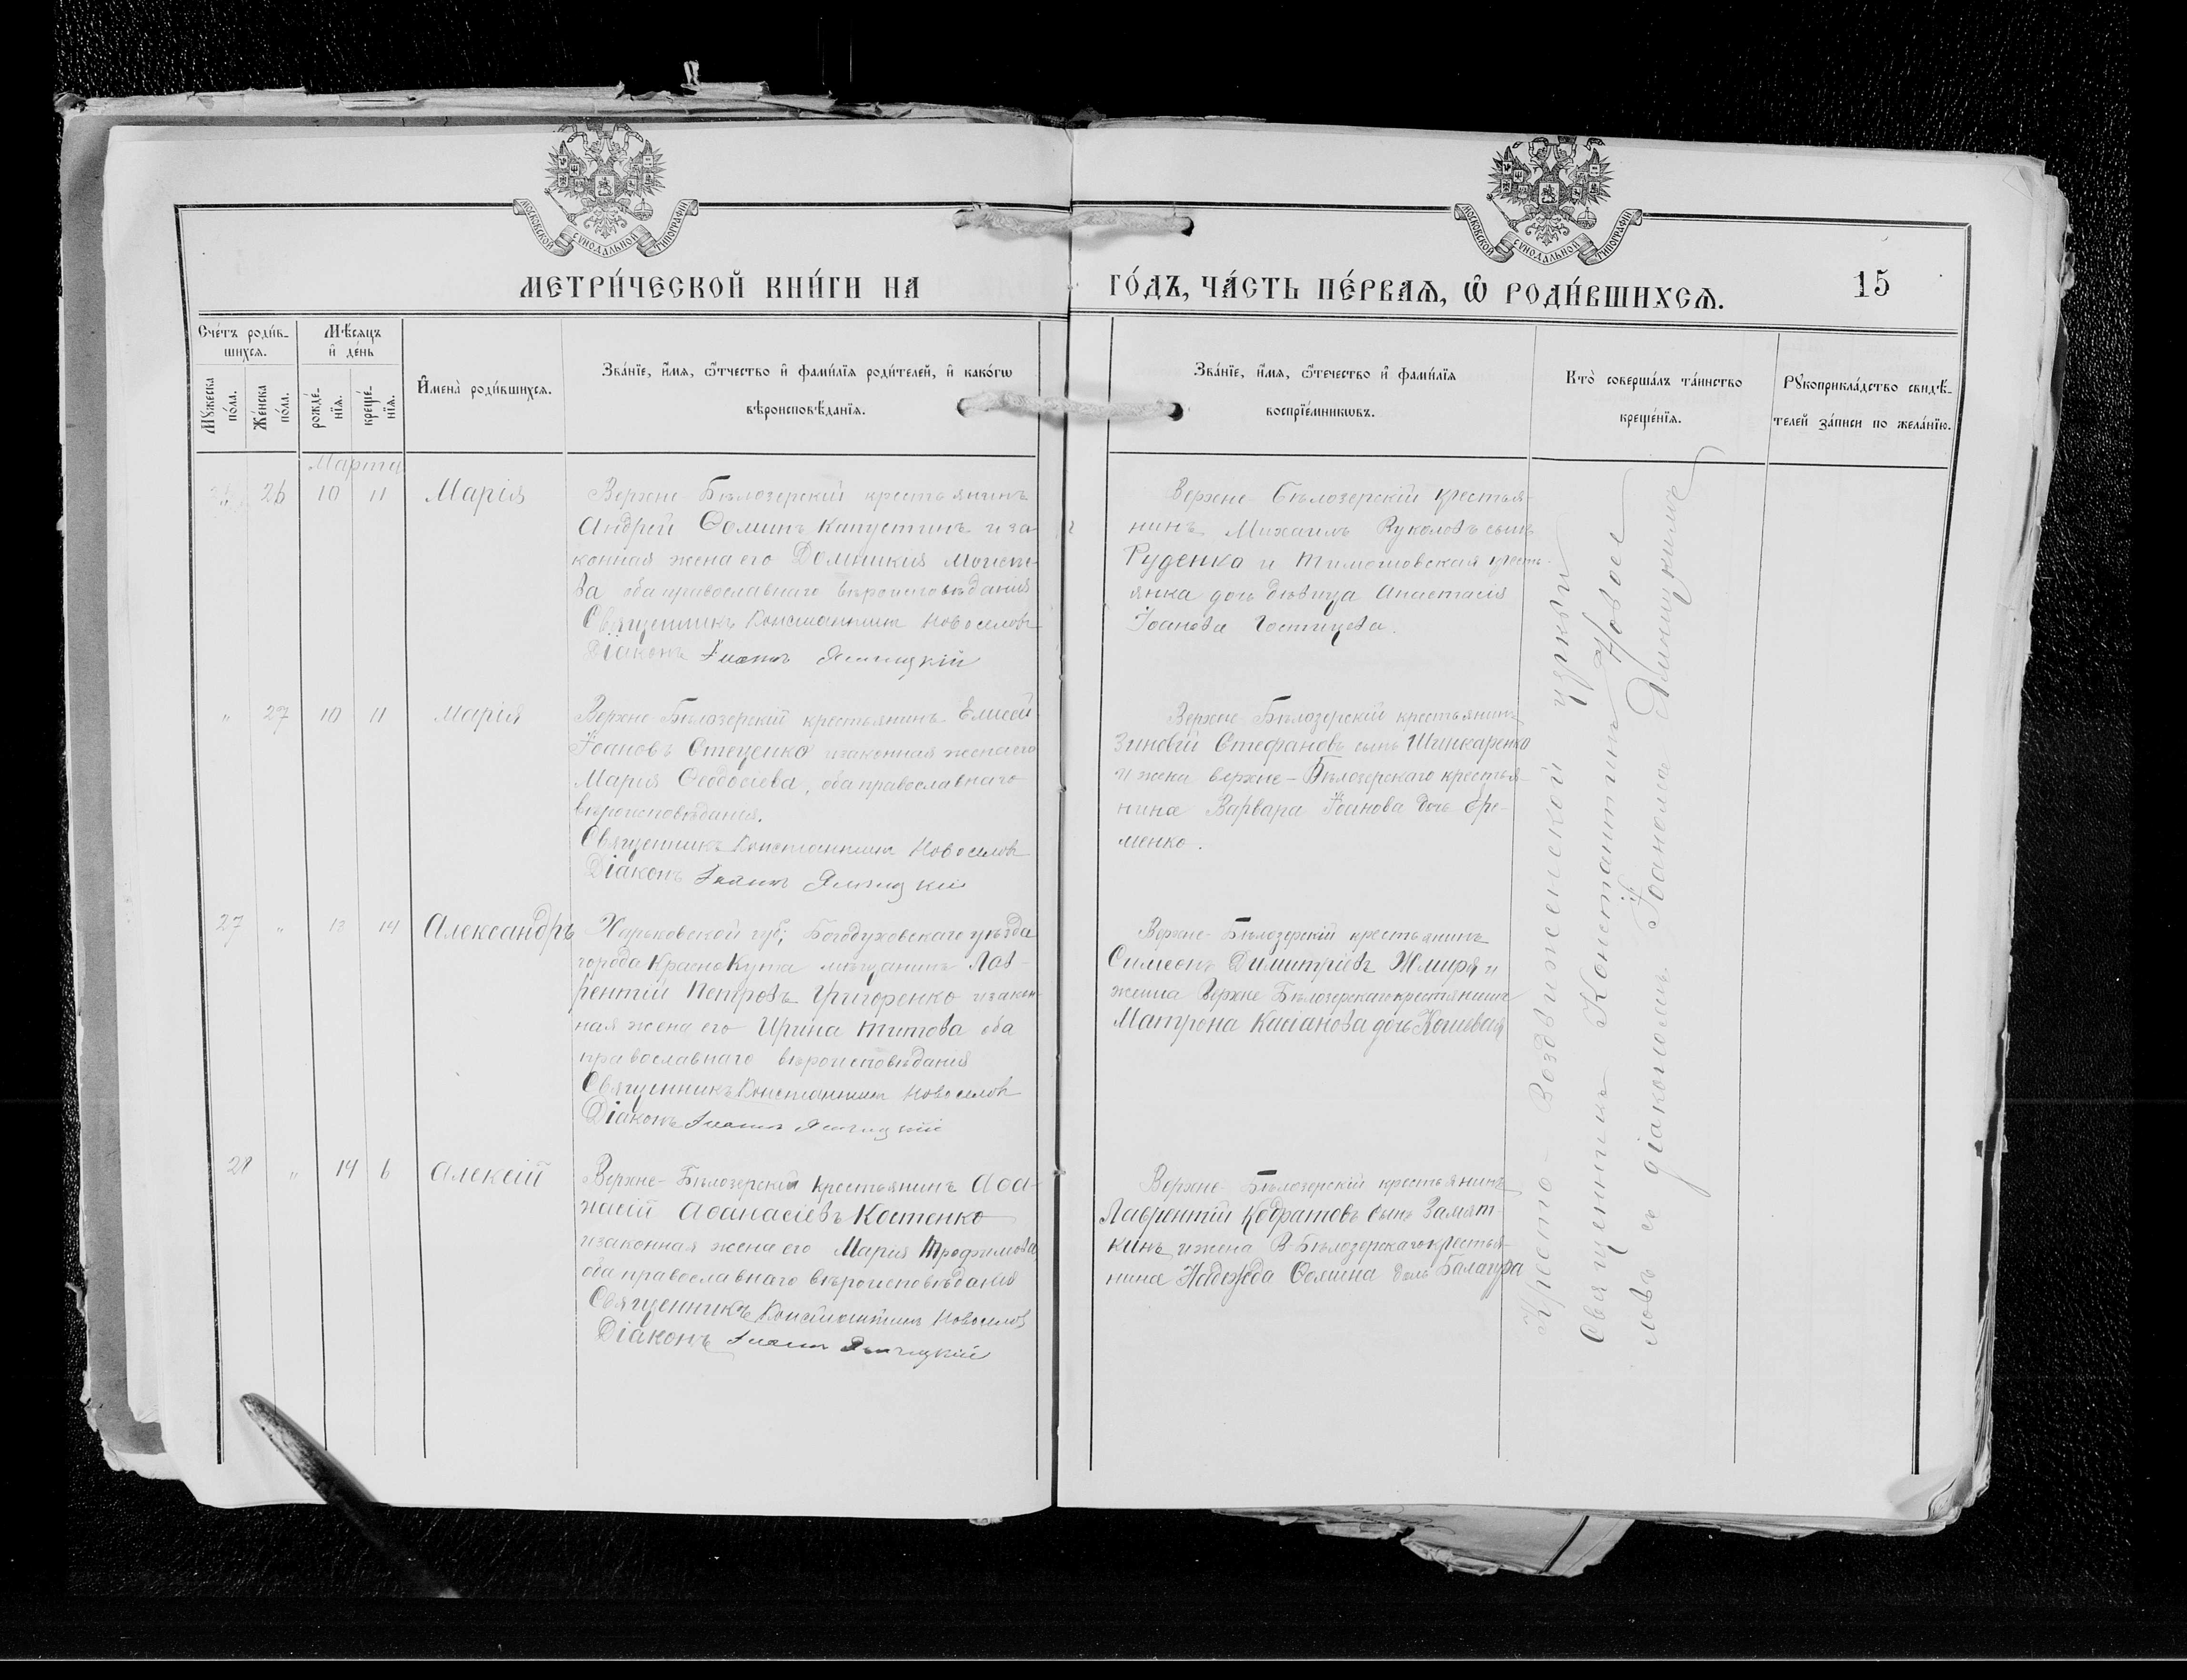 МОСКОВСКОЙ СѴНОДАЛЬНОЙ ТИПОГРАФІИ
МОСКОВСКОЙ СѴНОДАЛЬНОЙ ТИПОГРАФІИ
МЕТРИ́ЧЕСКОЙ КНИ́ГИ НА ГО́ДЪ, ЧА́СТЬ ПЕ́РВАѦ, Ѡ РОДИ́ВШИХСѦ.
15
Сче́тъ роди́в-
шихсѧ.
Мꙋжеска
по́ла.
Же́нска
по́ла.
Мѣ́сѧцъ
и҆ де́нь
рожде́-
нїѧ.
креще́-
нїѧ.
И҆мена̀ роди́вшихсѧ.
Зва́нїе, и҆́мѧ, ѻ҆́тчество и҆ фами́лїѧ роди́телей, и҆ како́гѡ
вѣроисповѣ́данїѧ.
Зва́нїе, и҆́мѧ, ѻ҆те́чество и҆ фами́лїѧ
воспрїе́мникѡвъ.
Кто̀ соверша́лъ та́инство
креще́нїѧ.
Рꙋкоприкла́дство свидѣ́-
телей за́писи по жела́нїю.
Марта
" 26 10 11 Марія
Верхне-Бѣлозерскій крестьянинъ
Андрей Ѳоминъ Капустинъ и за-
конная жена его Домникия Моисее-
ва оба православнаго вѣроисповѣданія
Священникъ Константинъ Новоселовъ
Діаконъ Іоаннъ Ямницкій
Верхне-Бѣлозерскій крестья-
нинъ Михаилъ сынъ
Руденко и Тимошовская кресть-
янка дочь дѣвица Анастасія
Іоанова
" 27 10 11 Марія
Верхне-Бѣлозерскій крестьянинъ Елисей
Іоановъ Стеценко и законная жена его
Марія Ѳеодосіева, оба православнаго
вѣроисповѣданія.
Священникъ Константинъ Новоселовъ
Діаконъ Іоаннъ Ямницкій
Верхне-Бѣлозерскій крестьянинъ
Зиновій Стефановъ сынъ Шинкаренко
и жена верхне-Бѣлозерскаго крестья-
нина Варвара Іоанова дочь Ере-
менко.
27 " 13 14 Александръ
Харьковской губ; Богодуховскаго уѣзда
города КрасноКута мѣщанинъ Лав-
рентій Петровъ Григоренко и закон-
ная жена его Ирина Титова оба
православнаго вѣроисповѣданія
Священникъ Константинъ Новоселовъ
Діаконъ Іоаннъ Ямницкій
Верхне-Бѣлозерскій крестьянинъ
Симеонъ Димитріевъ Жмиря и
жена Верхне Бѣлозерскаго крестьянина
Матрона Касіанова дочь Кошевая
28 " 14 Алексій
Верхне-Бѣлозерскій крестьянинъ Аѳа-
насій Аѳанасіевъ Костенко
и законная жена его Марія Трофимова,
оба православнаго вѣроисповѣданія
Священникъ Константинъ Новоселовъ
Діаконъ Іоаннъ Ямницкій
Верхне-Бѣлозерскій крестьянинъ
Лаврентій Кодратовъ сынъ Замят-
кинъ и жена В-Бѣлозерскаго крестья-
нина Надежда Ѳомина дочь Балагура
Кресто-Воздвиженской церкви
Священникъ Константинъ Новосе-
ловъ съ діакономъ Іоаномъ Ямницкимъ